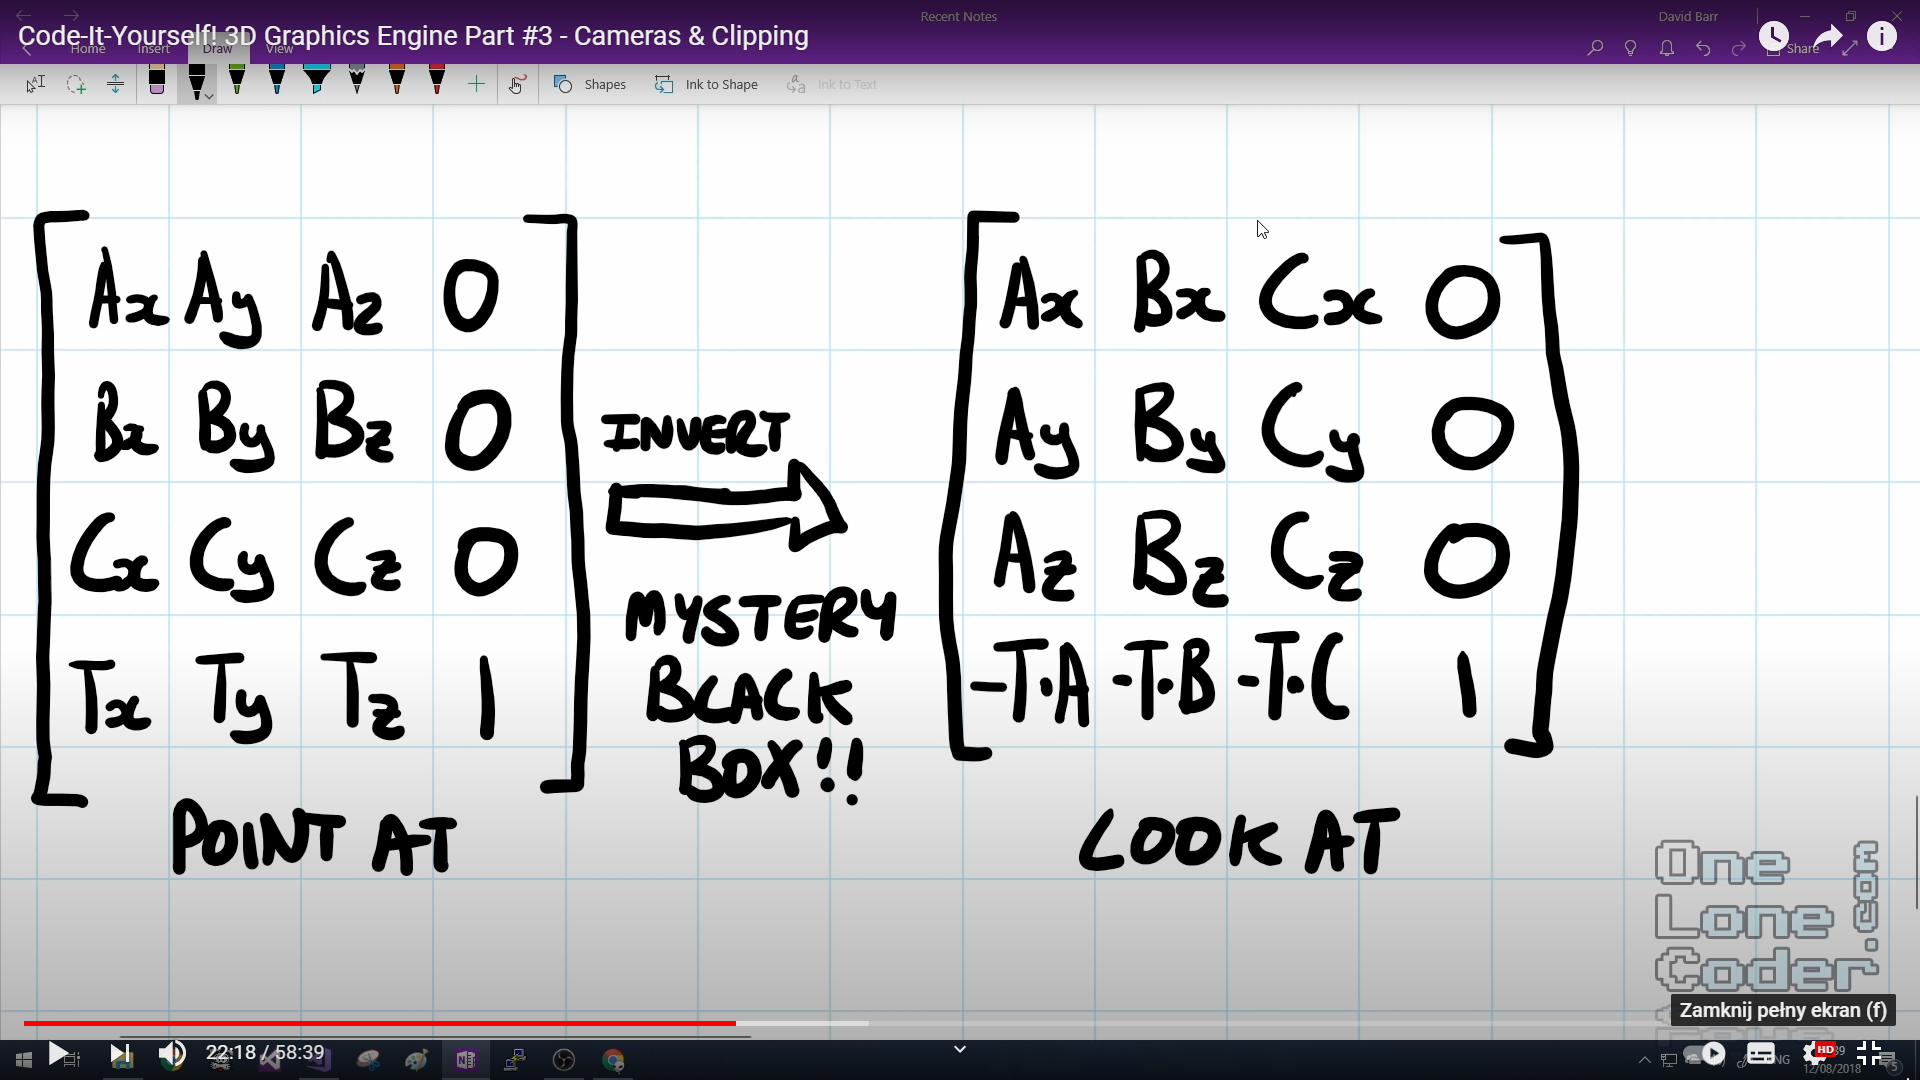 Recent Notes
David Barr
Code-It-Yourself! 3D Graphics Engine Part #3 - Cameras & Clipping
Home Insert Draw View
Share
Shapes Ink to Shape Ink to Text
Ax Ay Az 0
Bx By Bz 0
Cx Cy Cz 0
Tx Ty Tz 1
POINT AT
INVERT
MYSTERY
BLACK
BOX!!
Ax Bx Cx 0
Ay By Cy 0
Az Bz Cz 0
-T·A -T·B -T·C 1
LOOK AT
One
Lone
Coder
.com
Zamknij pełny ekran (f)
22:18 / 58:39
HD
12/08/2018
5